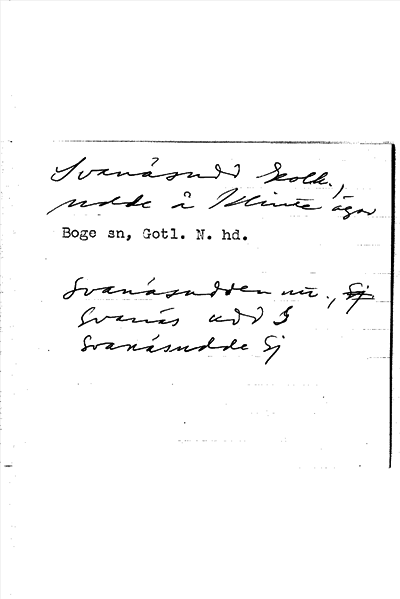 Svanåsudd holk.,
udde å Klinte ägor
Boge sn, Gotl. N. hd.
Svanåsudden
Svanås udd S
Svanåsudde Sj